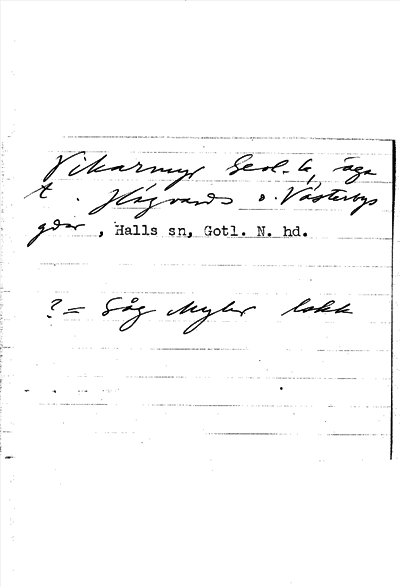 Vikarmyr Geol. k, äga
t. Högvards o. Västerbys
gdar, Halls sn, Gotl. N. hd.
? = Såg Myler lokk